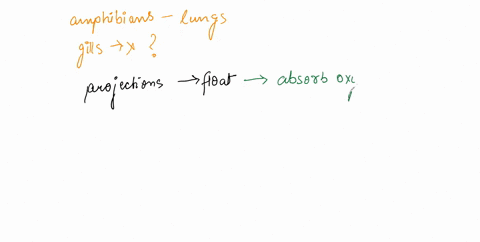 amphibians - lungs
gills → x ?
projections → float → absorb oxy